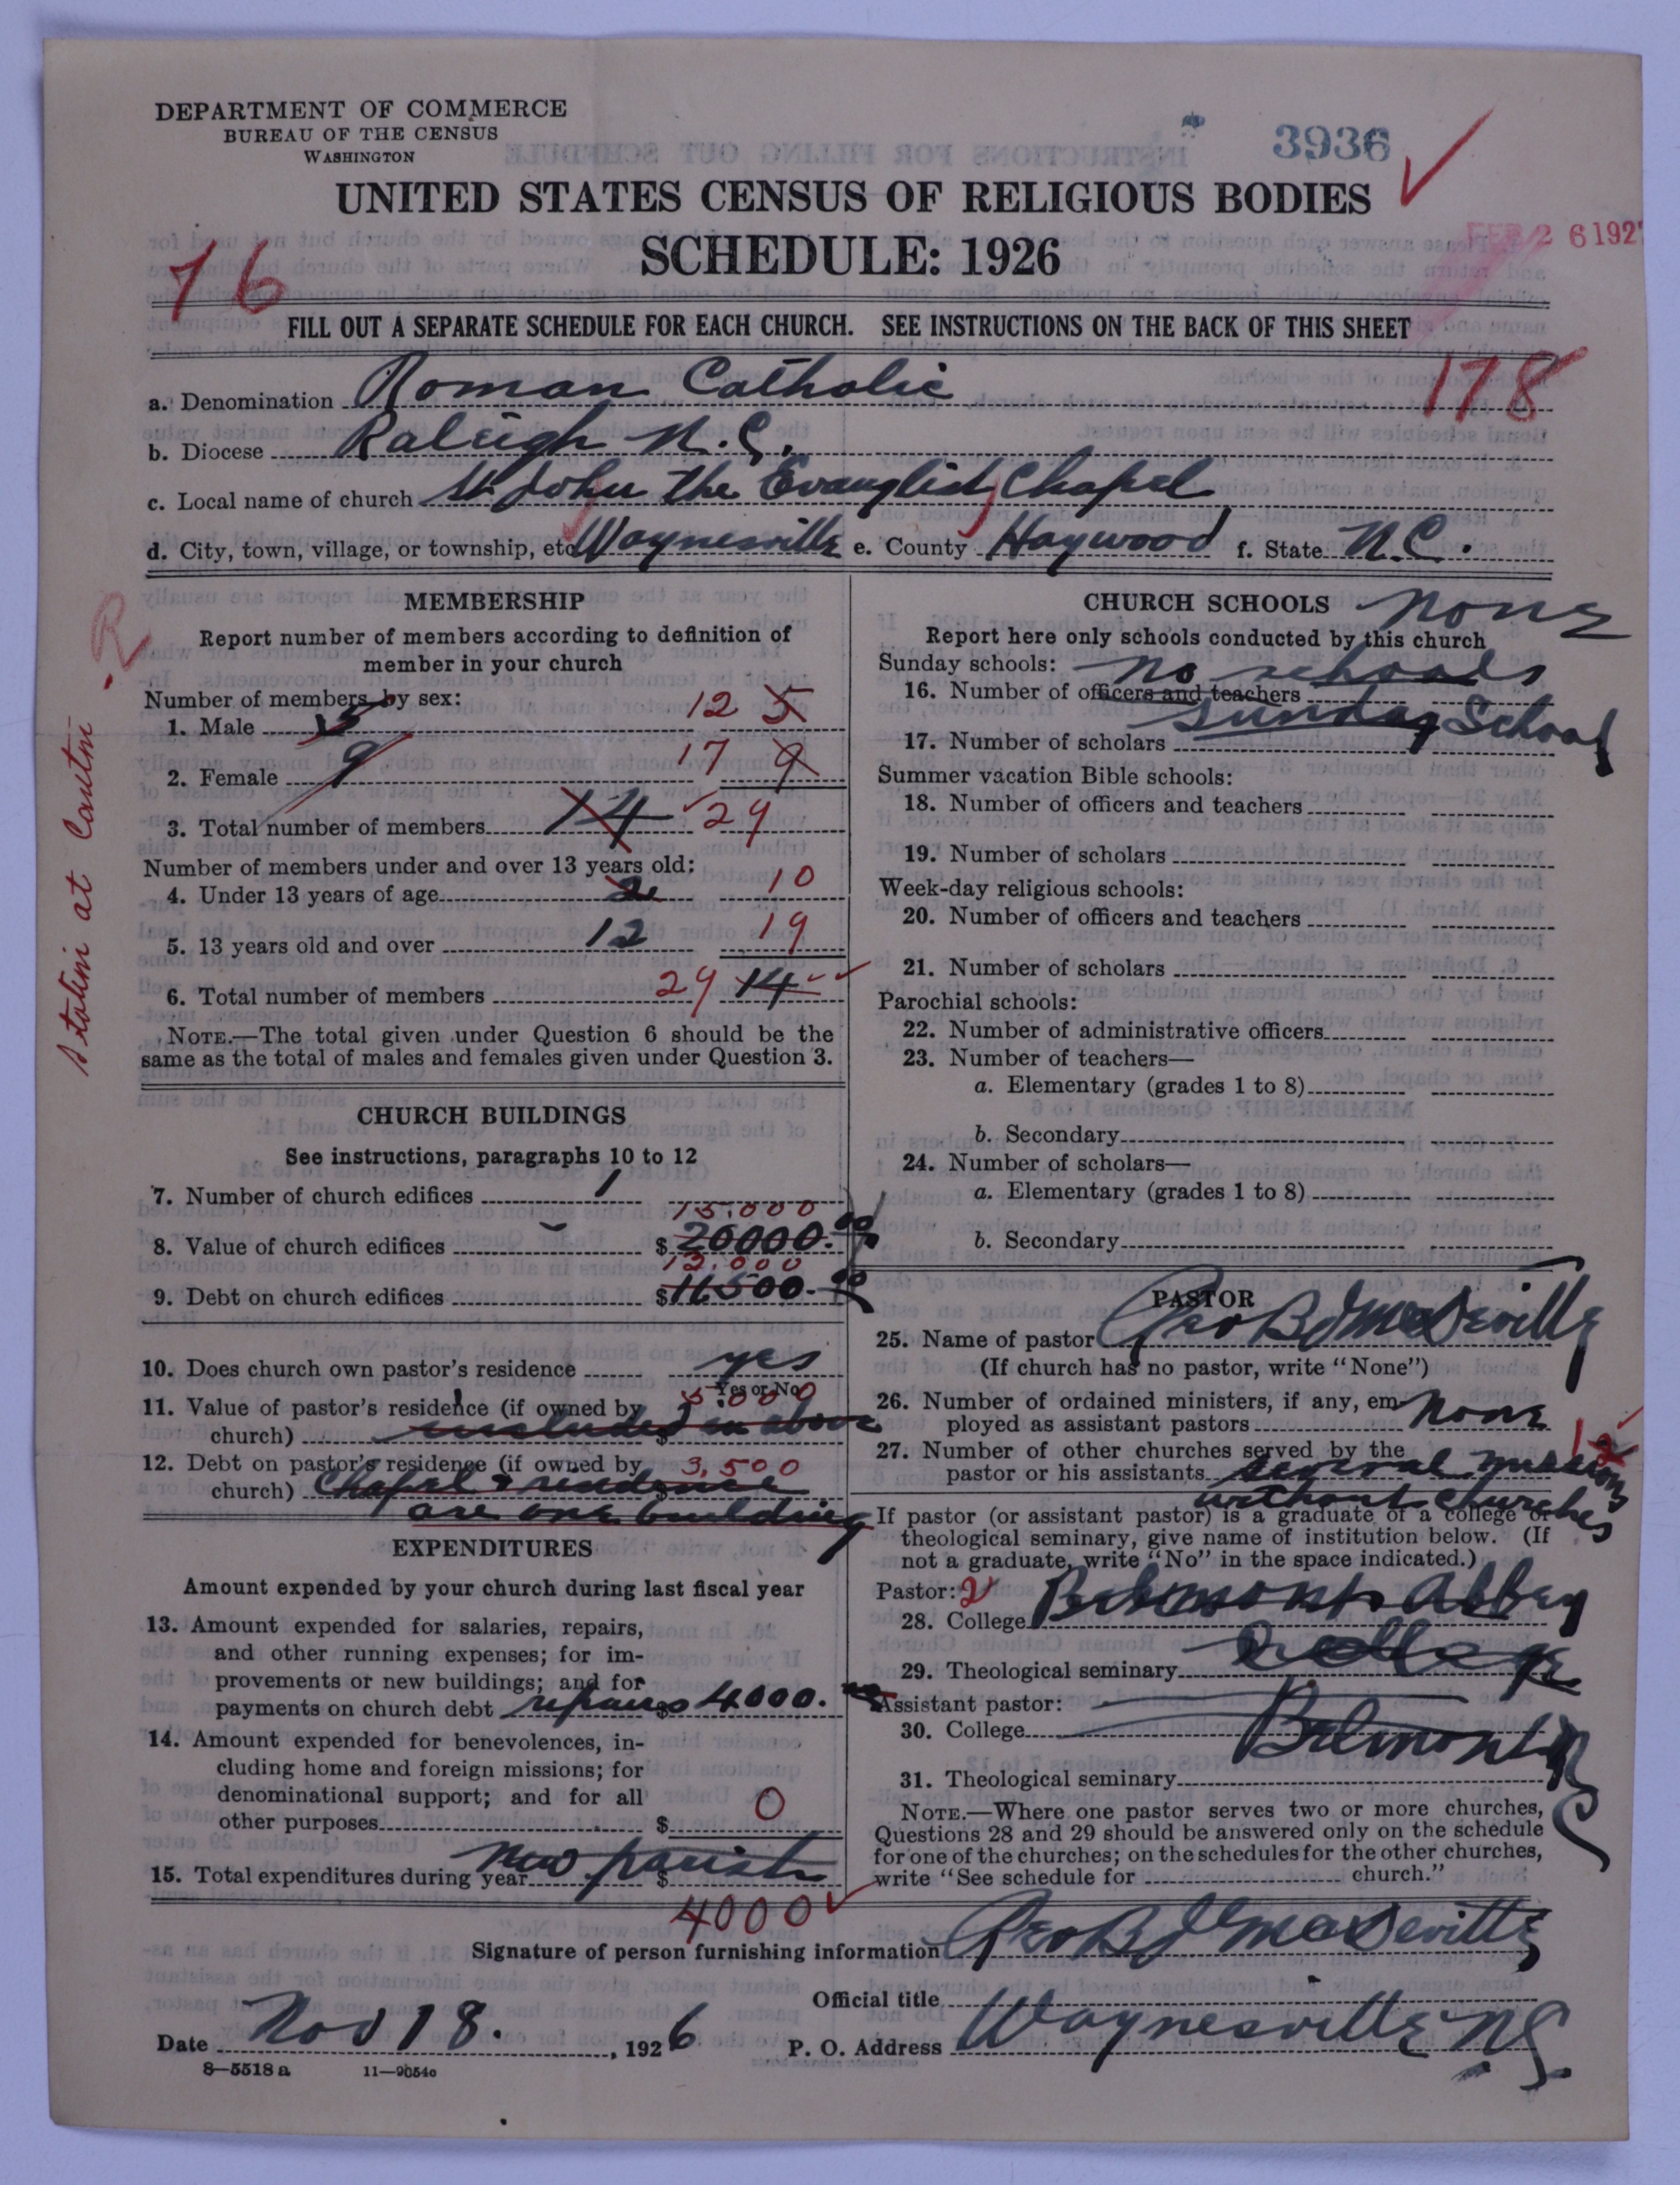 DEPARTMENT OF COMMERCE
BUREAU OF THE CENSUS
WASHINGTON
3936
UNITED STATES CENSUS OF RELIGIOUS BODIES
SCHEDULE: 1926
FEB 26 1927
76
FILL OUT A SEPARATE SCHEDULE FOR EACH CHURCH. SEE INSTRUCTIONS ON THE BACK OF THIS SHEET
178
a. Denomination Roman Catholic
b. Diocese Raleigh N.C.
c. Local name of church St John the Evanglist Chapel
d. City, town, village, or township, etc. Waynesville e. County Haywood f. State N.C.
MEMBERSHIP
Report number of members according to definition of
member in your church
Number of members by sex:
1. Male 5 12 5
2. Female 9 17 9
3. Total number of members 14 29
Number of members under and over 13 years old:
4. Under 13 years of age 2 10
5. 13 years old and over 12 19
6. Total number of members 29 14
NOTE.—The total given under Question 6 should be the
same as the total of males and females given under Question 3.
CHURCH BUILDINGS
See instructions, paragraphs 10 to 12
7. Number of church edifices 1
15.000
8. Value of church edifices $ 20000.00
12.000
9. Debt on church edifices $ 11500.00
10. Does church own pastor's residence yes
Yes or No
5.000
11. Value of pastor's residence (if owned by
church) included in above $
12. Debt on pastor's residence (if owned by 3,500
church) Chapel & residence $
are one building
EXPENDITURES
Amount expended by your church during last fiscal year
13. Amount expended for salaries, repairs,
and other running expenses; for im-
provements or new buildings; and for
payments on church debt repairs $ 4000.
14. Amount expended for benevolences, in-
cluding home and foreign missions; for
denominational support; and for all
other purposes $ 0
15. Total expenditures during year new parish $
4000
CHURCH SCHOOLS none
Report here only schools conducted by this church
Sunday schools: no schools
16. Number of officers and teachers
Sunday School
17. Number of scholars
Summer vacation Bible schools:
18. Number of officers and teachers
19. Number of scholars
Week-day religious schools:
20. Number of officers and teachers
21. Number of scholars
Parochial schools:
22. Number of administrative officers
23. Number of teachers—
a. Elementary (grades 1 to 8)
b. Secondary
24. Number of scholars—
a. Elementary (grades 1 to 8)
b. Secondary
PASTOR
25. Name of pastor Geo
(If church has no pastor, write "None")
26. Number of ordained ministers, if any, em-
ployed as assistant pastors none
27. Number of other churches served by the
pastor or his assistants several missions
without churches
If pastor (or assistant pastor) is a graduate of a college or
theological seminary, give name of institution below. (If
not a graduate, write "No" in the space indicated.)
Pastor: 2
28. College Belmont Abbey
29. Theological seminary College
Assistant pastor:
30. College Belmont N C
31. Theological seminary
NOTE.—Where one pastor serves two or more churches,
Questions 28 and 29 should be answered only on the schedule
for one of the churches; on the schedules for the other churches,
write "See schedule for church."
Signature of person furnishing information Geo
Official title
Date Nov 18. , 1926
P. O. Address Waynesville N.C.
8—5518 a 11—9054c